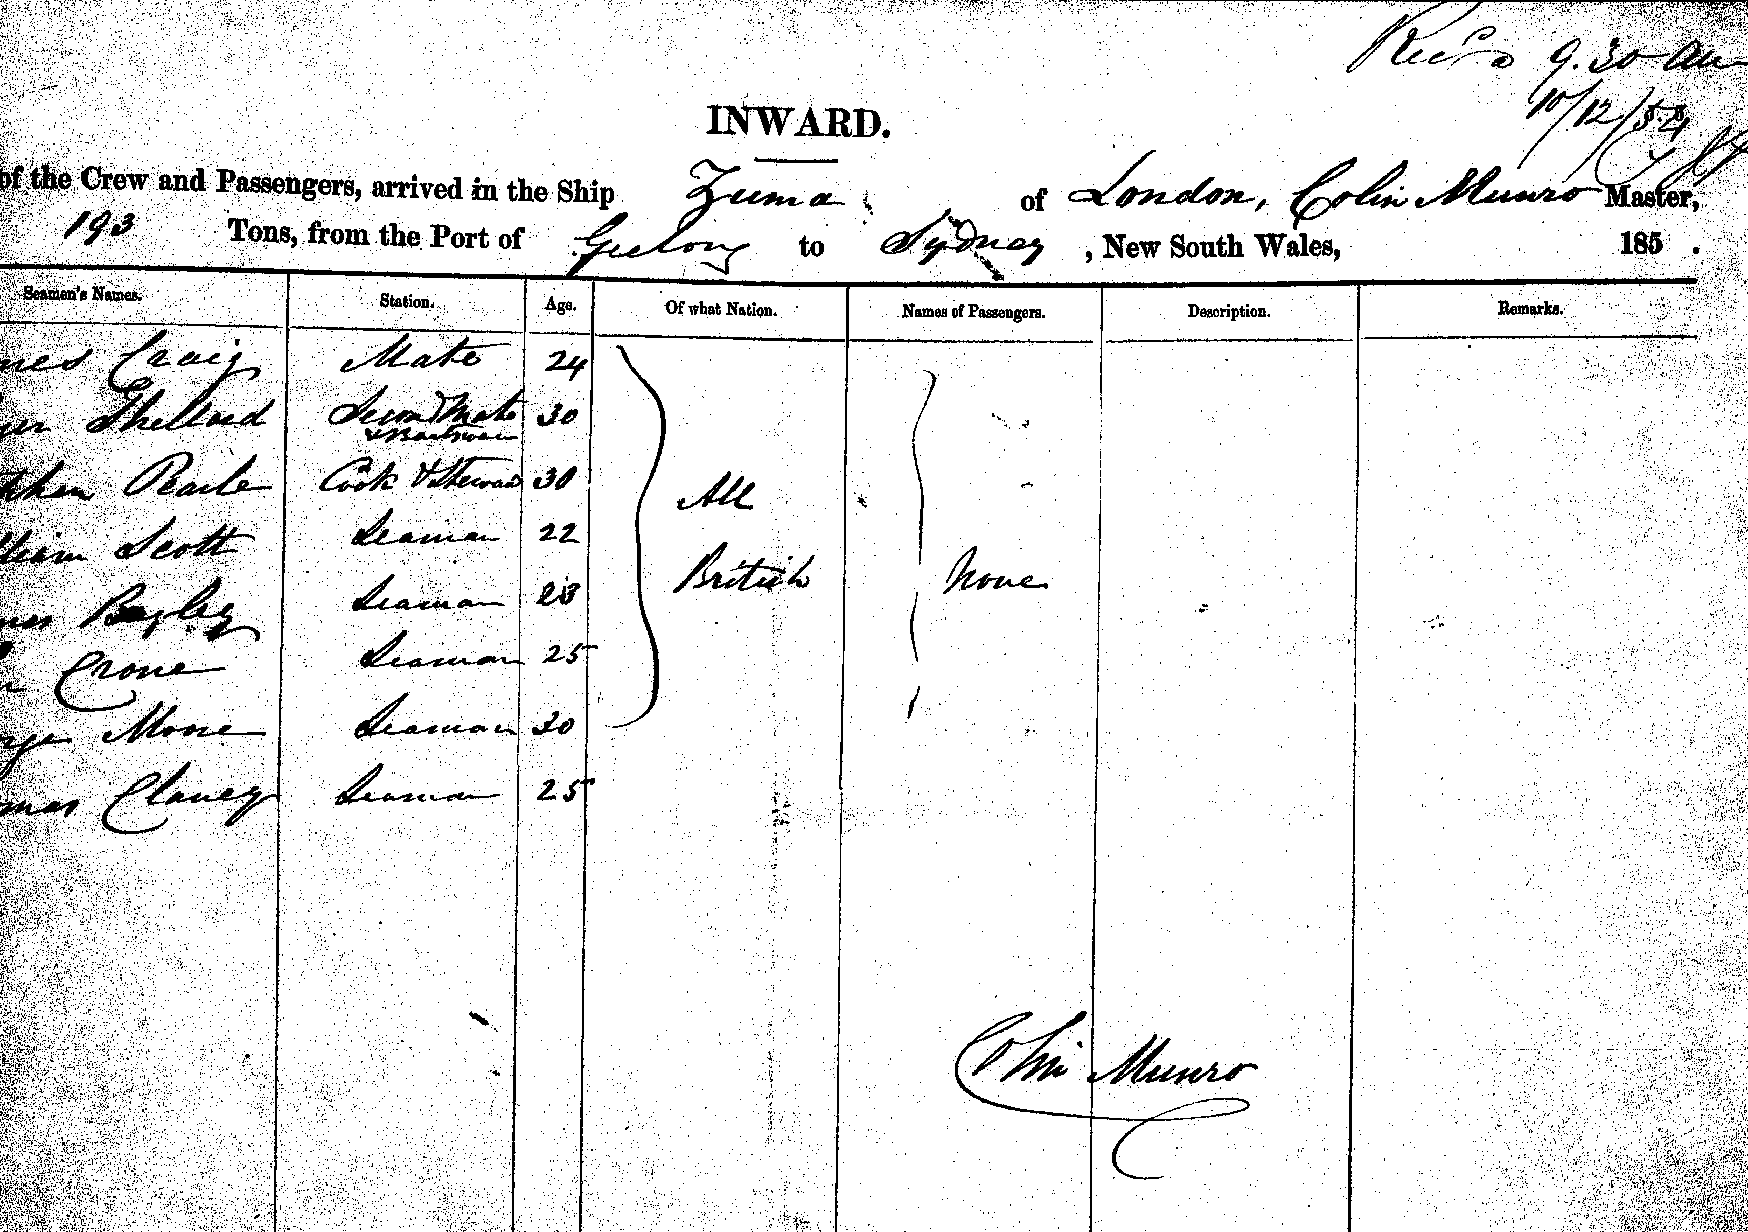 Rec'd 9.30 am
10/12/54
INWARD.
of the Crew and Passengers, arrived in the Ship Zuma of London, Colin Munro Master,
193 Tons, from the Port of Geelong to Sydney, New South Wales, 185 .
Seamen's Names. Station. Age. Of what Nation. Names of Passengers. Description. Remarks.
mes Craig Mate 24
Shellard Second Mate 30
& Boatswain
phen Pearle Cook & Steward 30 All
lliam Scott Seaman 22
Bagley Seaman 28 British None
n Crone Seaman 25
rge Morse Seaman 30
mas Clancy Seaman 25
Colin Munro